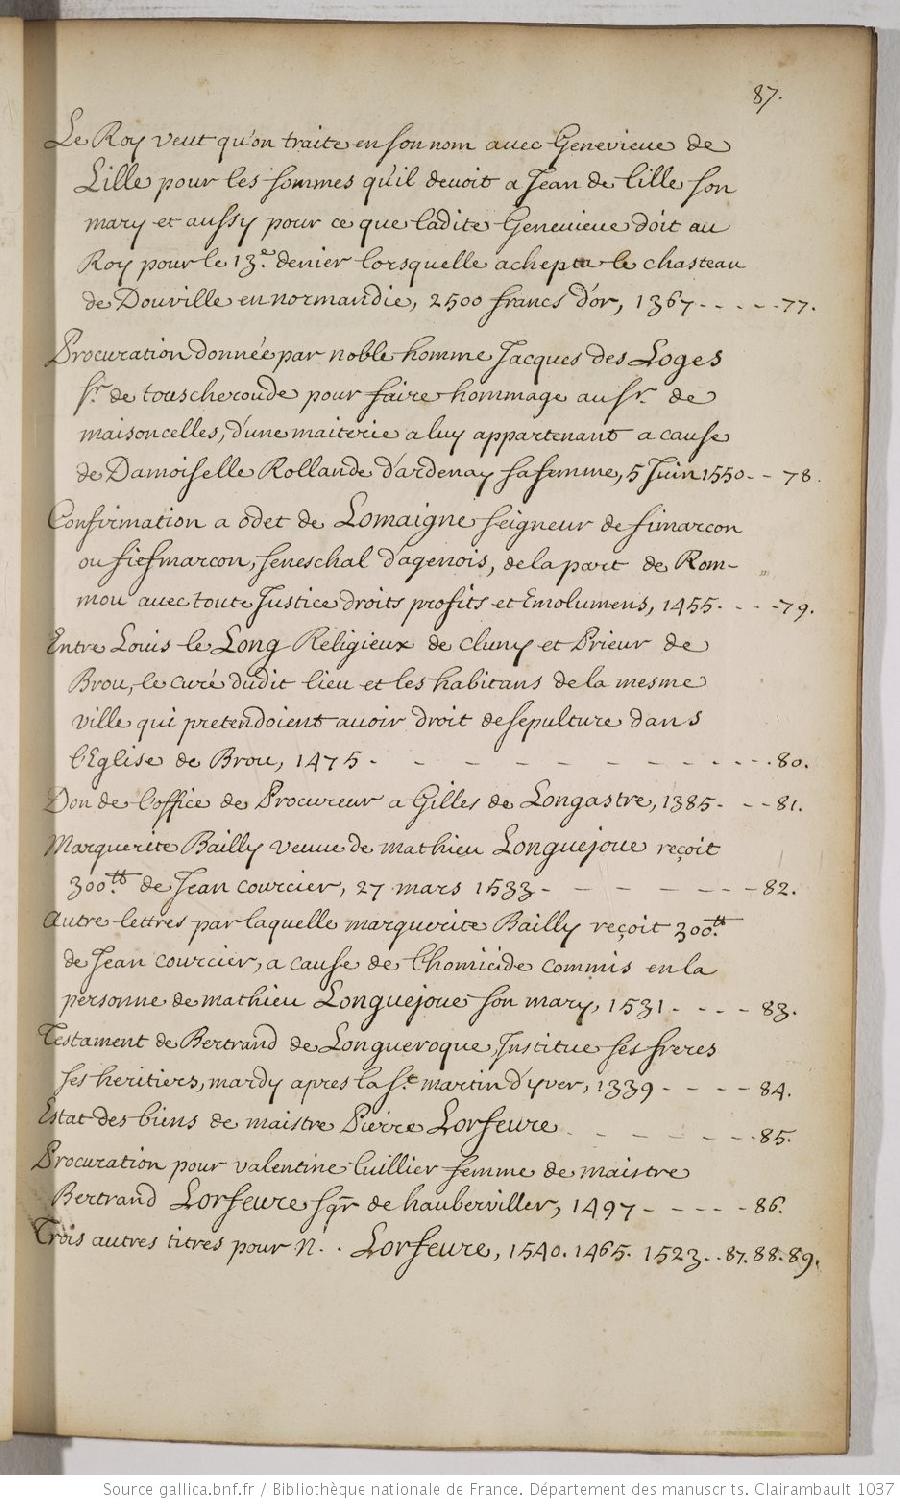 87.
Le Roy veut qu'on traite en son nom avec Genevieve de
Lille pour les sommes qu'il devoit a Jean de Lille son
mary et aussy pour ce que ladite Genevieve doit au
Roy pour le 13e. denier lorsquelle achepta le chasteau
de Douville en normandie, 2500 francs d'or, 1367 - - - - - 77.
Procuration donnée par noble homme Jacques des Loges
sr. de touscheronde pour faire hommage au sr. de
maisoncelles, d'une maiterie a luy appartenant a cause
de Damoiselle Rollande d'ardenay sa femme, 5 Juin 1550 - - 78.
Confirmation a odet de Lomaigne seigneur de fimarcon
ou fiefmarcon, seneschal d'agenois, de la part de Rom-
mou avec toute Justice droits profits et Emolumens, 1455 - - - - 79.
Entre Louis le Long Religieux de Cluny et Prieur de
Brou, le curé dudit lieu et les habitans de la mesme
ville qui pretendoient avoir droit de sepulture dans
l'Eglise de Brou, 1475 - - - - - - - - - - - - 80.
Don de l'office de Procureur a Gilles de Longastre, 1385 - - - 81.
Marguerite Bailly veuve de mathieu Longuejoue reçoit
300.tt de Jean courcier, 27 mars 1533 - - - - - - - - 82.
Autre lettres par laquelle marguerite Bailly reçoit 300.tt
de Jean courcier, a cause de l'homicide commis en la
personne de mathieu Longuejoue son mary, 1531 - - - - 83.
Testament de Bertrand de Longueroque, Institue ses freres
ses heritiers, mardy apres la St. martin d'yver, 1339 - - - - 84.
Estat des biens de maistre Pierre Lorfeure - - - - - - 85.
Procuration pour valentine luillier femme de maistre
Bertrand Lorfeure sgr de hauberviller, 1497 - - - - - 86.
Trois autres titres pour N. . Lorfeure, 1540. 1465. 1523. . 87. 88. 89.
Source gallica.bnf.fr / Bibliothèque nationale de France. Département des manuscrits. Clairambault 1037